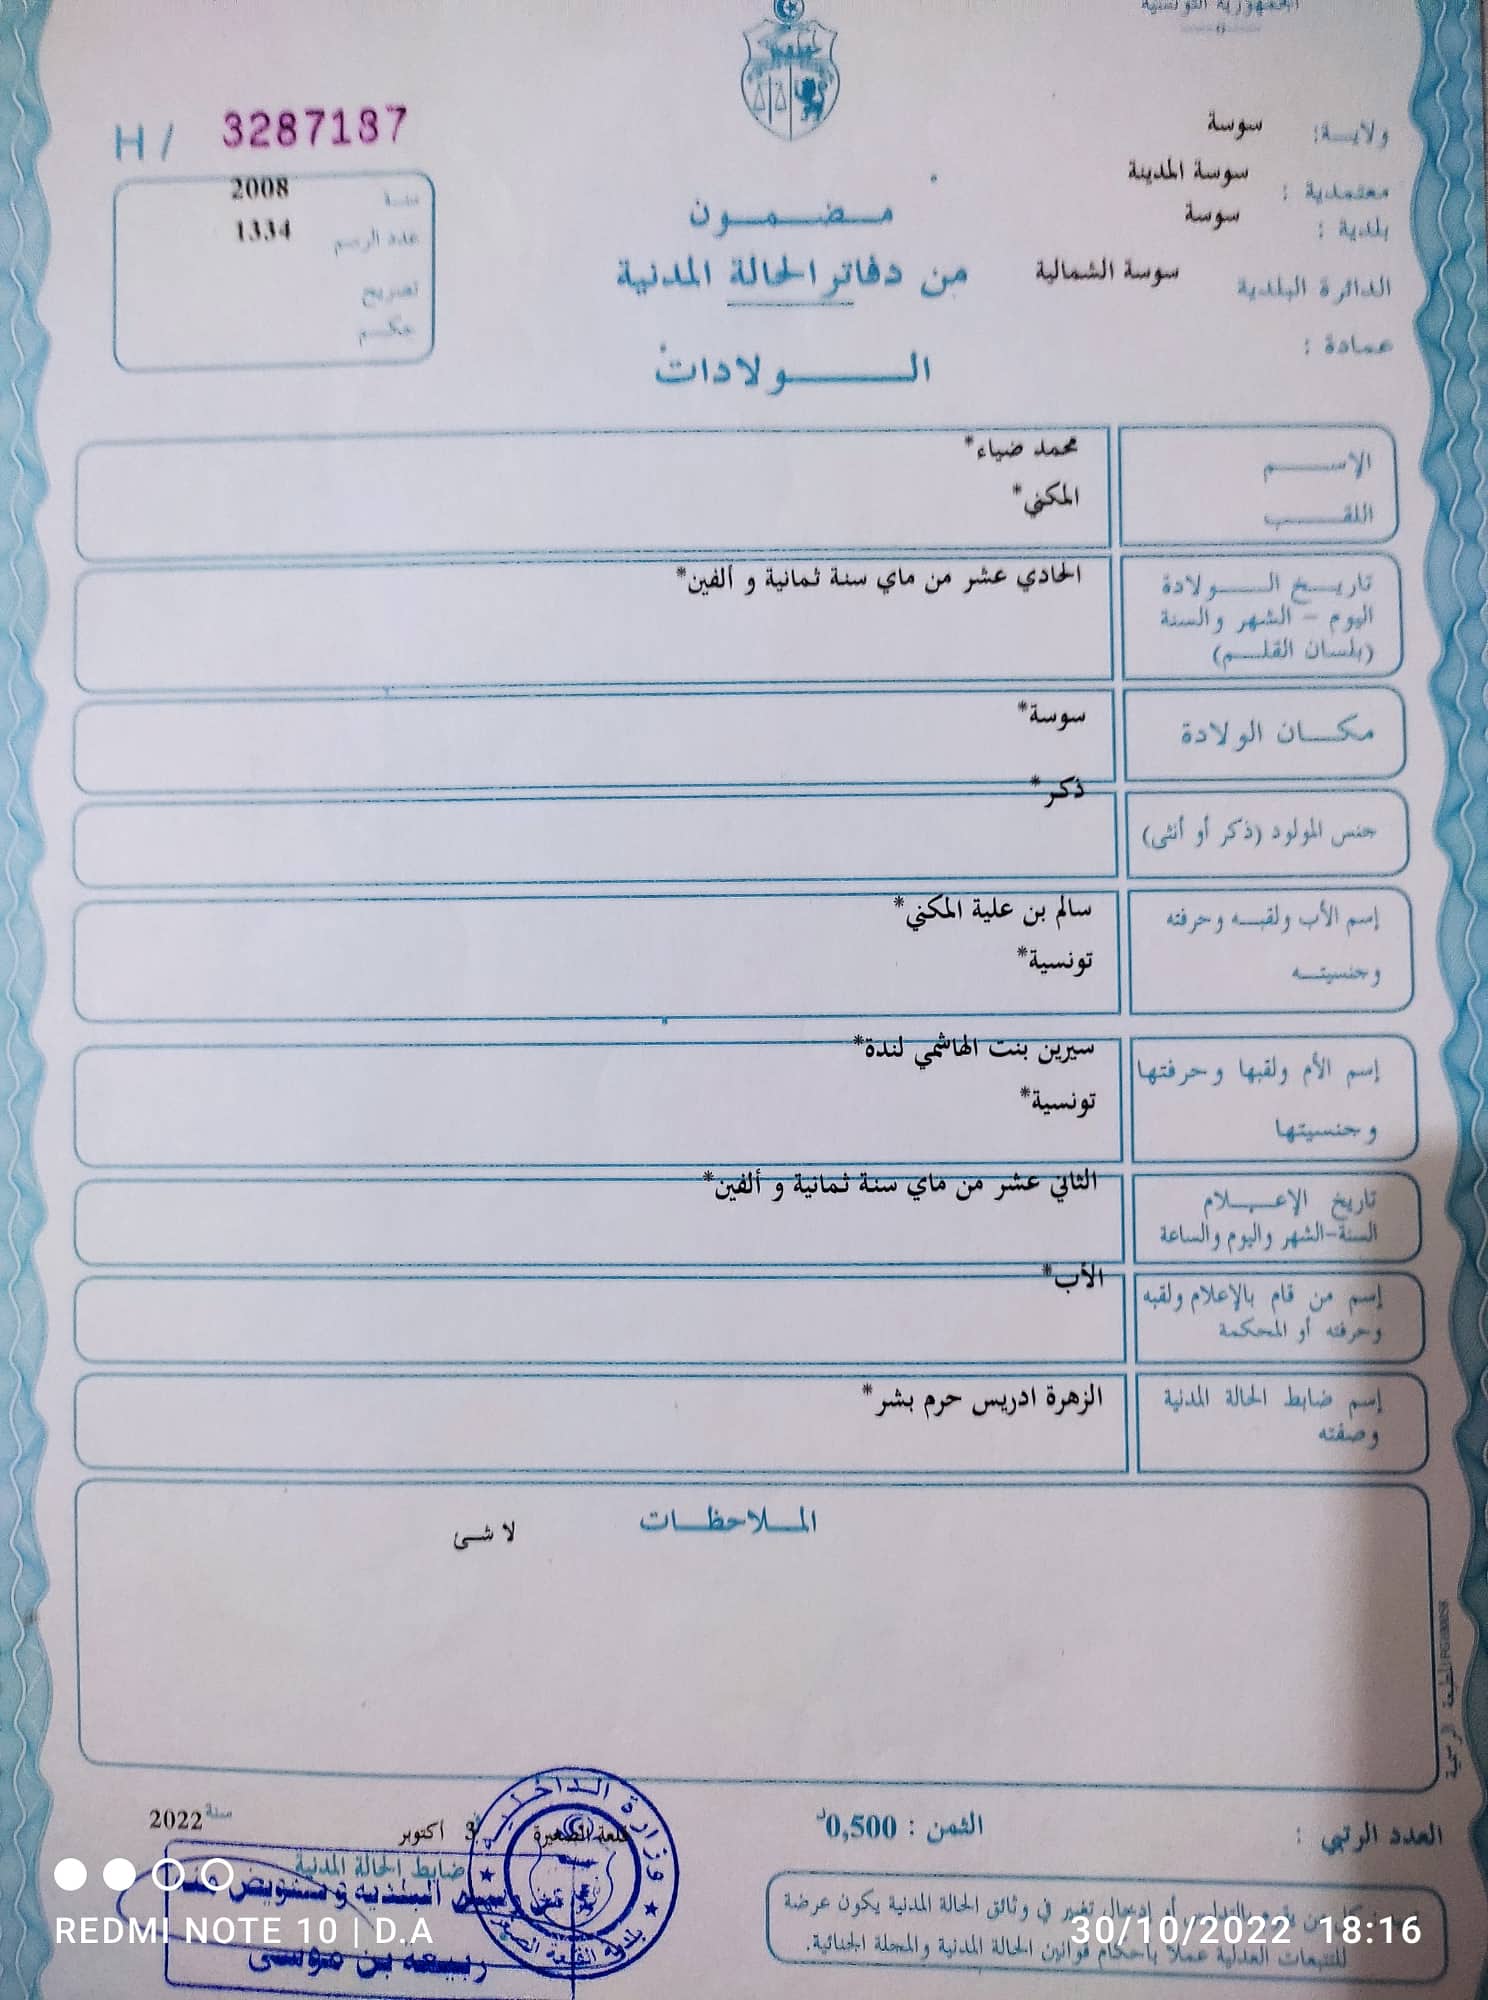 الجمهورية التونسية
H / 3287187
ولاية: سوسة
معتمدية : سوسة المدينة
بلدية : سوسة
الدائرة البلدية سوسة الشمالية
عمادة :
سنة 2008
عدد الرسم 1334
تصريح
حكم
مضمون
من دفاتر الحالة المدنية
الولادات
الاسم محمد ضياء*
اللقب المكني*
تاريخ الولادة الحادي عشر من ماي سنة ثمانية و ألفين*
اليوم - الشهر والسنة
(بلسان القلم)
مكان الولادة سوسة*
جنس المولود (ذكر أو أنثى) ذكر*
إسم الأب ولقبه وحرفته سالم بن علية المكني*
وجنسيته تونسية*
إسم الأم ولقبها وحرفتها سيرين بنت الهاشمي لندة*
وجنسيتها تونسية*
تاريخ الإعلام الثاني عشر من ماي سنة ثمانية و ألفين*
السنة-الشهر واليوم والساعة
إسم من قام بالإعلام ولقبه الأب*
وحرفته أو المحكمة
إسم ضابط الحالة المدنية الزهرة ادريس حرم بشر*
وصفته
الملاحظات
لا شى
المطبعة الرسمية
العدد الرتبي :
الثمن : 0,500د
قلعة الصغيرة في 3 أكتوبر سنة 2022
ضابط الحالة المدنية
البلدية وبتفويض منه
ربيعة بن موسى
وزارة الداخلية
بلدية القلعة الصغرى
كل من يقوم بالتدليس أو إدخال تغيير في وثائق الحالة المدنية يكون عرضة
للتتبعات العدلية عملا بأحكام قوانين الحالة المدنية والمجلة الجنائية.
REDMI NOTE 10 | D.A
30/10/2022 18:16